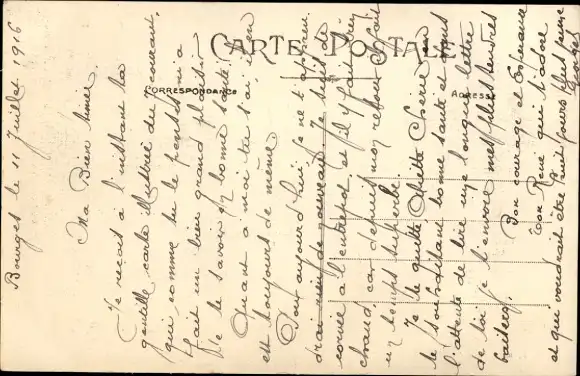 CARTE POSTALE
CORRESPONDANCE
ADRESSE
Bourges le 11 Juillet 1916
Ma Bien Aimée
Je reçois à l'instant ta
gentille carte illustrée du courant,
qui comme tu le penses m'a
fait un bien grand plaisir
de te savoir en bonne santé.
Quant à moi tu s'ai il en
est toujours de même
Pour aujourd'hui je ne t'appren
drai rien de nouveau. Je suis de
corvée à l'entrepot et il y fait très
chaud, car depuis mon retour il fait
un temps superbe.
Je te quitte Chérie en
te souhaitant bonne santé et dans
l'attente de lire une longue lettre
de toi je t'envoie mes plus tendres
baisers.
Bon courage et Espérance
Ton René qui t'adore
et qui voudrait être huit jours plus jeune